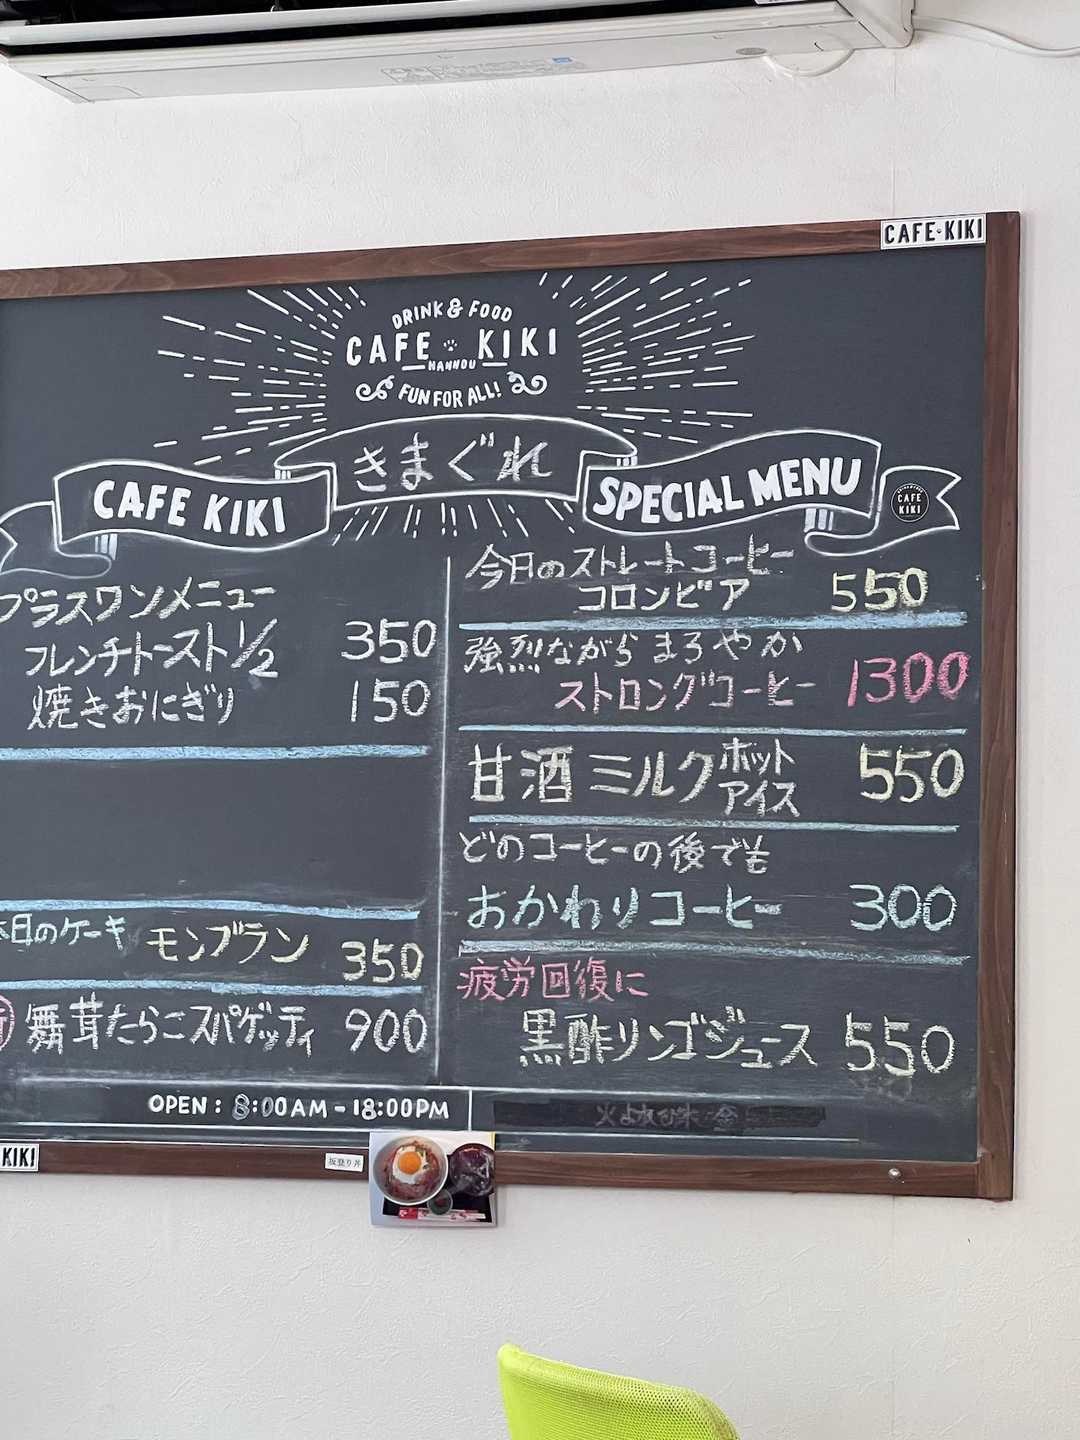 CAFE KIKI
DRINK & FOOD
CAFE KIKI
NANNOU
FUN FOR ALL!
きまぐれ
CAFE KIKI
SPECIAL MENU
CAFE
KIKI
プラスワンメニュー
フレンチトースト1/2 350
焼きおにぎり 150
本日のケーキ モンブラン 350
舞茸たらこスパゲッティ 900
今日のストレートコーヒー
コロンビア 550
強烈ながらまろやか
ストロングコーヒー 1300
甘酒ミルク ホット
アイス 550
どのコーヒーの後でも
おかわりコーヒー 300
疲労回復に
黒酢リンゴジュース 550
OPEN: 8:00AM-18:00PM
KIKI
坂登り丼